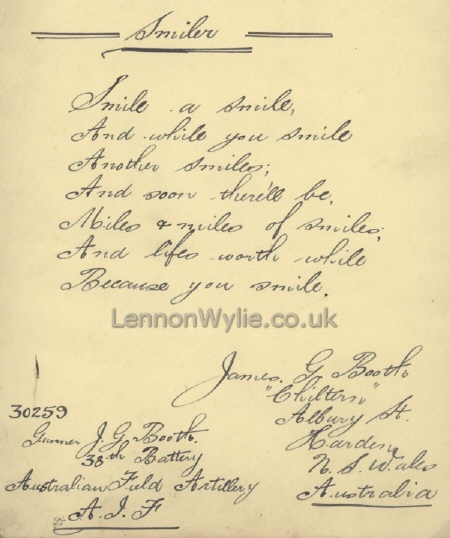 Smiler
Smile a smile,
And while you smile
Another smiles;
And soon there'll be,
Miles & miles of smiles;
And lifes worth while
Because you smile.
LennonWylie.co.uk
James. G Booth
"Chiltern"
Albury St.
Harden
N. S. Wales
Australia
30259
Gunner J. G. Booth.
38th Battery
Australian Field Artillery
A. I. F